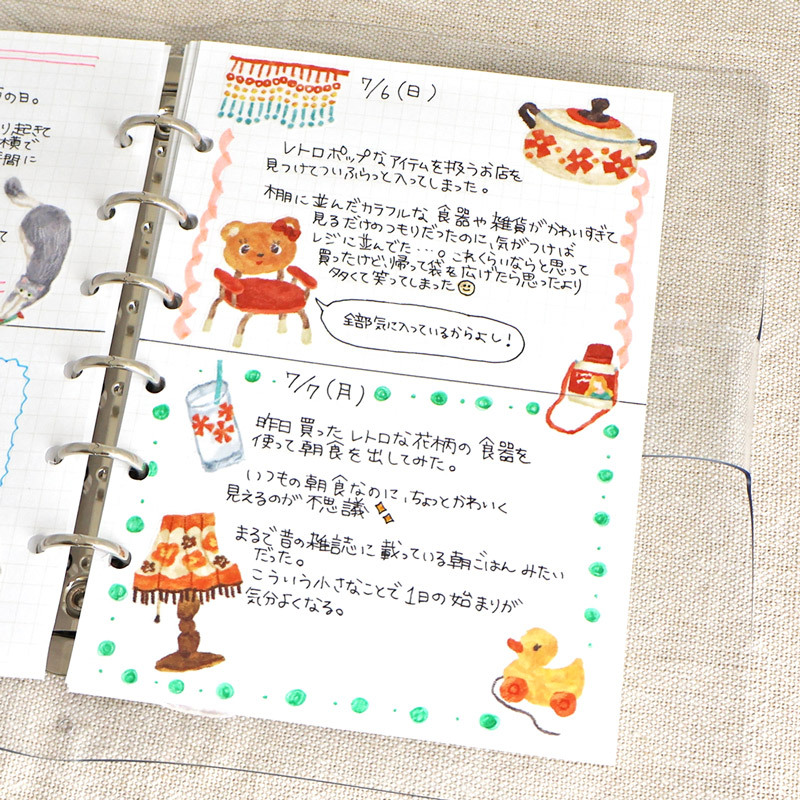 の日。
り,起きて
横で
間に
て
7/6(日)
レトロポップなアイテムを扱うお店を
見つけてついふらっと入ってしまった。
棚に並んだカラフルな食器や雑貨がかわいすぎて
見るだけのつもりだったのに,気がつけば
レジに並んでた…。これくらいならと思って
買ったけど,帰って袋を広げたら思ったより
多くて笑ってしまった
全部気に入っているからよし!
7/7(月)
昨日買ったレトロな花柄の食器を
使って朝食を出してみた。
いつもの朝食なのに,ちょっとかわいく
見えるのが不思議
まるで昔の雑誌に載っている朝ごはんみたい
だった。
こういう小さなことで1日の始まりが
気分よくなる。